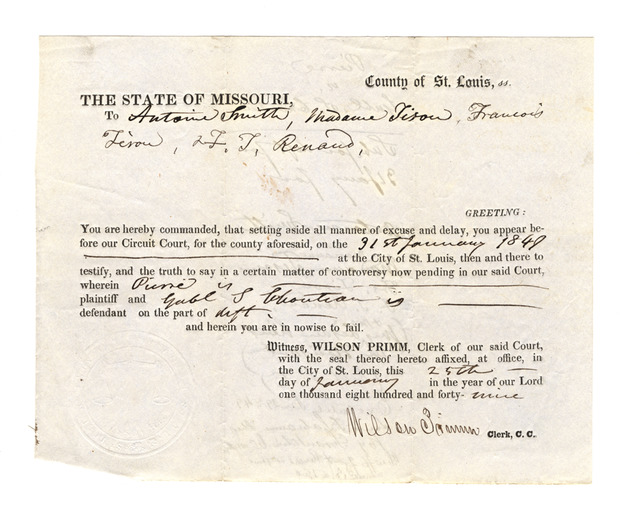 County of St. Louis, ss.
THE STATE OF MISSOURI,
To Antoine Smith, Madame Tison, Francois
Tison, & F. T. Renaud,
GREETING:
You are hereby commanded, that setting aside all manner of excuse and delay, you appear be-
fore our Circuit Court, for the county aforesaid, on the 31st January 1849
at the City of St. Louis, then and there to
testify, and the truth to say in a certain matter of controversy now pending in our said Court,
wherein Pierre is
plaintiff and Gabl S Chouteau is
defendant on the part of deft.
and herein you are in nowise to fail.
Witness, WILSON PRIMM, Clerk of our said Court,
with the seal thereof hereto affixed, at office, in
the City of St. Louis, this 25th
day of January in the year of our Lord
one thousand eight hundred and forty-nine
Wilson Primm Clerk, C. C.